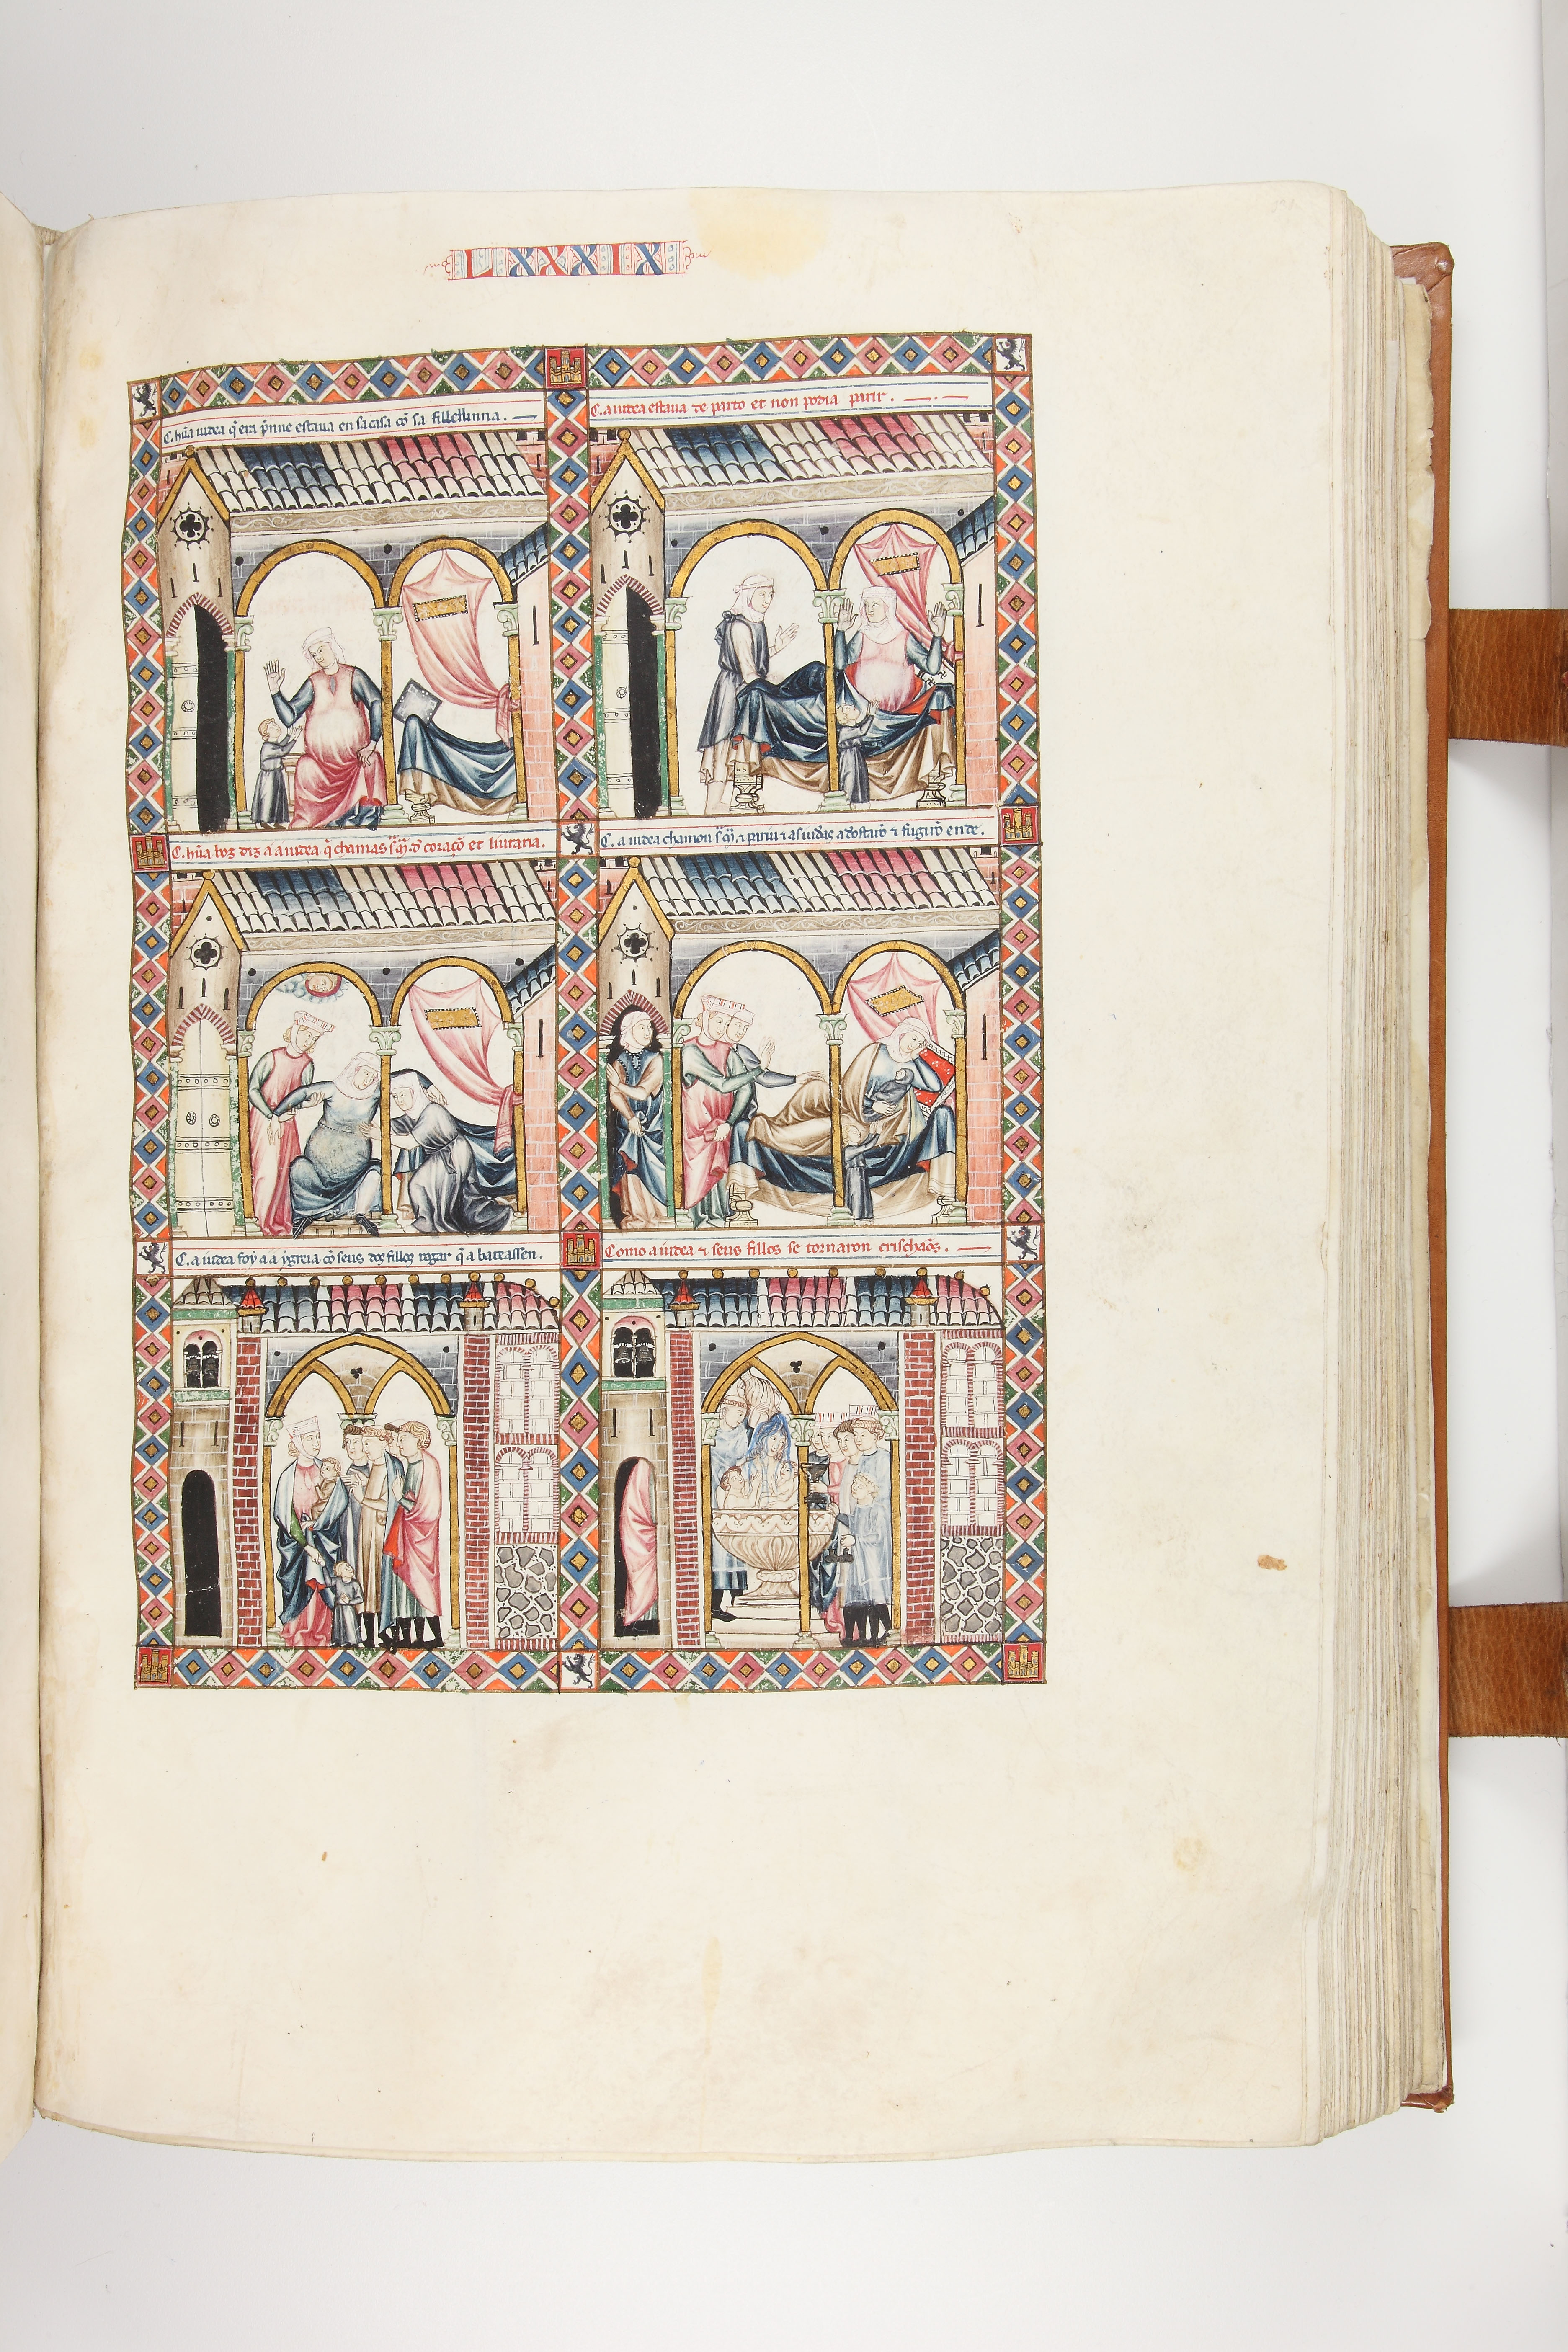 LXXXIX
C. hũa iudea q̃ era p̃nne estaua en sa casa cõ sa fillellinna.
C. a iudea estaua de parto et non podia parir.
C. hũa boz diz a a iudea q̃ chamas s̃. m̃. d̃ coraçõ et liuraria.
C. a iudea chamou s̃. m̃. ⁊ pariu ⁊ as iudias a dostarõ ⁊ fugirõ ende.
C. a iudea foy a a ygreia cõ seus dos fillos rogar q̃ a bateassen.
Como a iudea ⁊ seus fillos se tornaron crischaõs.